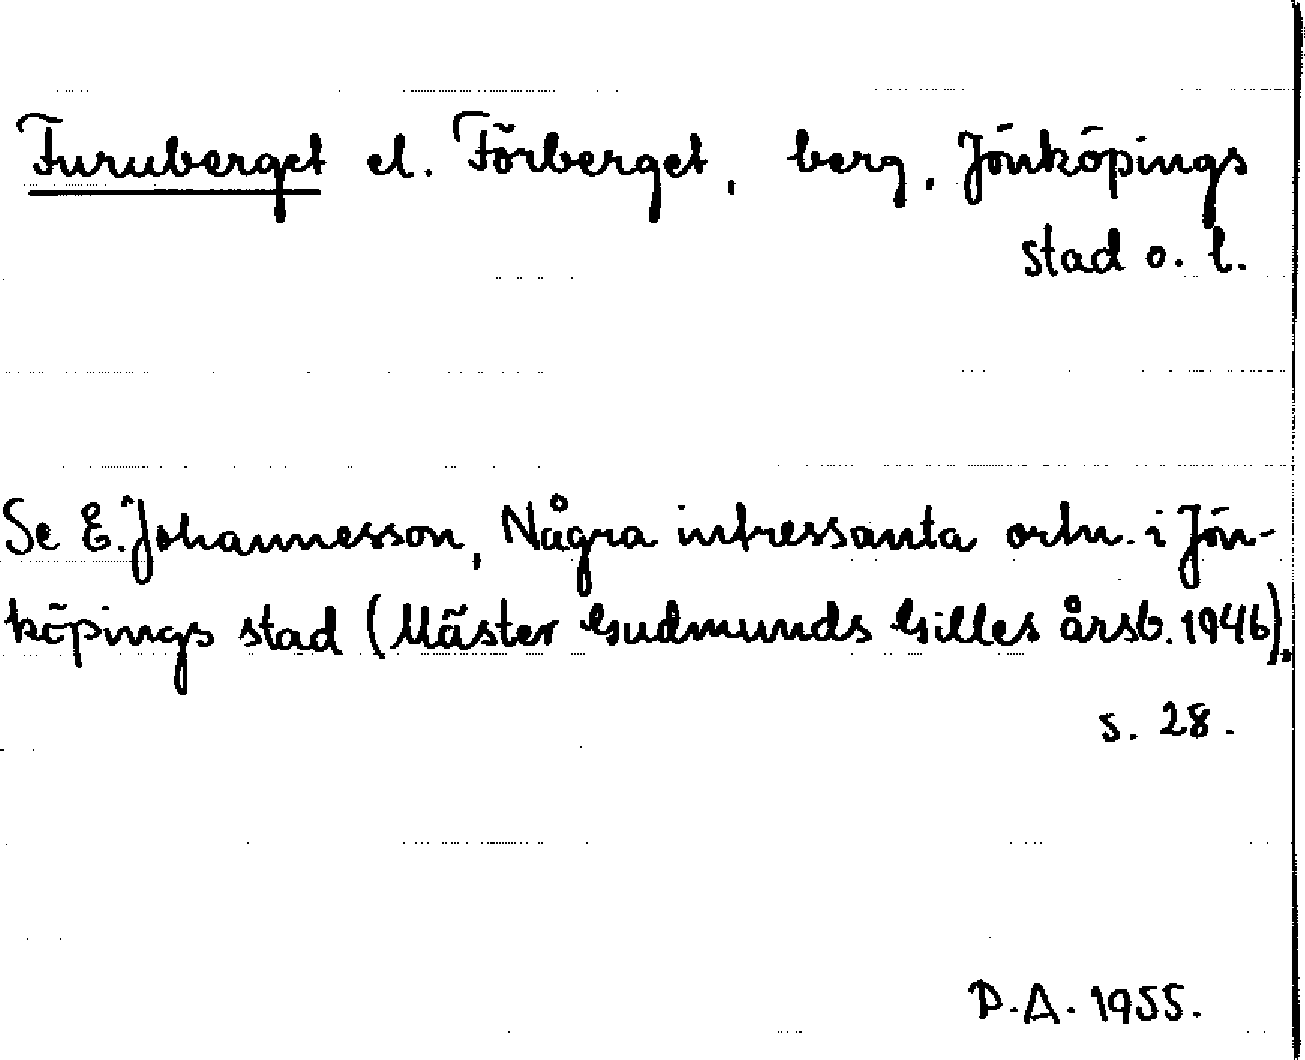 Furuberget el. Förberget, berg, Jönköpings
stad o. l.
Se E. Johannesson, Några intressanta ortn. i Jön-
köpings stad (Mäster Gudmunds Gilles årsb. 1946),
s. 28.
D.A. 1955.